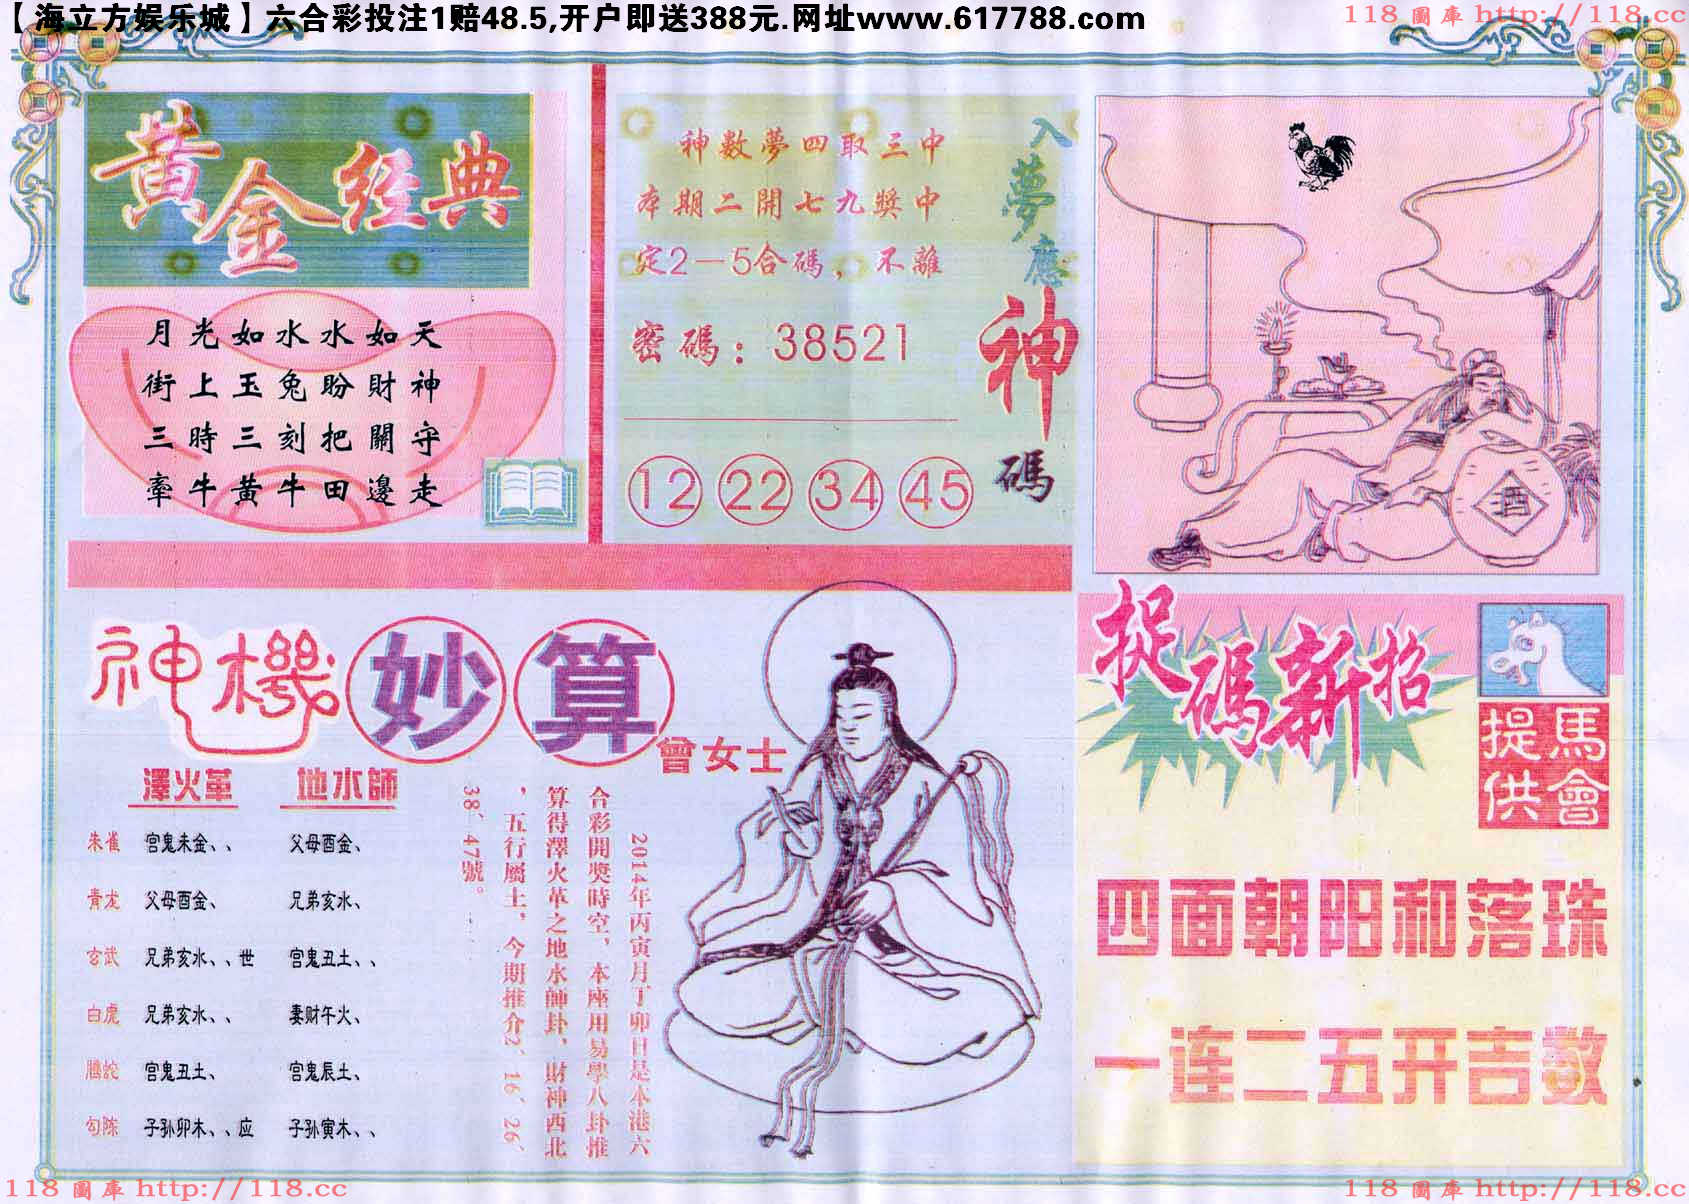 【海立方娱乐城】六合彩投注1赔48.5,开户即送388元.网址www.617788.com
118 圖庫 http://118.cc
黄金经典
月光如水水如天
街上玉兔盼財神
三時三刻把關守
牽牛黄牛田邊走
入夢應神碼
神數夢四取三中
本期二開七九獎中
定2－5合碼，不離
密碼：38521
12 22 34 45
酒
神機妙算
曾女士
澤火革 地水師
朱雀 宫鬼未金、、 父母酉金、
青龙 父母酉金、 兄弟亥水、
玄武 兄弟亥水、、世 宫鬼丑土、、
白虎 兄弟亥水、、 妻财午火、
騰蛇 宫鬼丑土、 宫鬼辰土、
勾陈 子孙卯木、、应 子孙寅木、、
2014年丙寅月丁卯日是本港六
合彩開獎時空，本座用易學八卦推
算得澤火革之地水師卦，財神西北
，五行屬土，今期推介2、16、26、
38、47號。
捉碼新招
馬會
提供
四面朝阳和落珠
一连二五开吉数
118 圖庫 http://118.cc
118 圖庫 http://118.cc